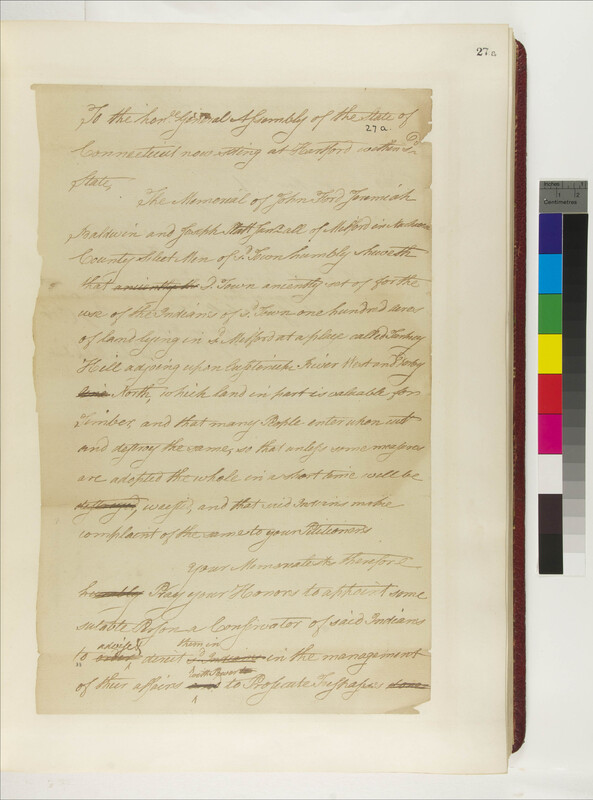 27a
To the hon.l General Assembly of the State of
27 a.
Connecticut now sitting at Hartford within sd
State,
The Memorial of John Ford Jeremiah
Baldwin and Joseph Platt Junr all of Milford in
County Select Men of sd Town humbly sheweth
that anciently sd Town anciently set of for the
use of the Indians of sd Town one hundred acres
of land lying in sd Milford at a place called Turkey
Hill adjoing upon River West and Derby
line North, which land in part is valuable for
Timber, and that many People enter upon cut
and destroy the same, so that unless some measures
are adopted the whole in a short time will be
destroyed, wasted, and that said Indians make
complaint of the same to your Petitioners
Your Memorialists therefore
humbly Pray your Honors to appoint some
sutable Person a Conservator of said Indians
advise them in
to order direct sd Indians in the management
with Power to
of their affairs and to Prosecute Trespasses done
Inches
1 2
Centimetres